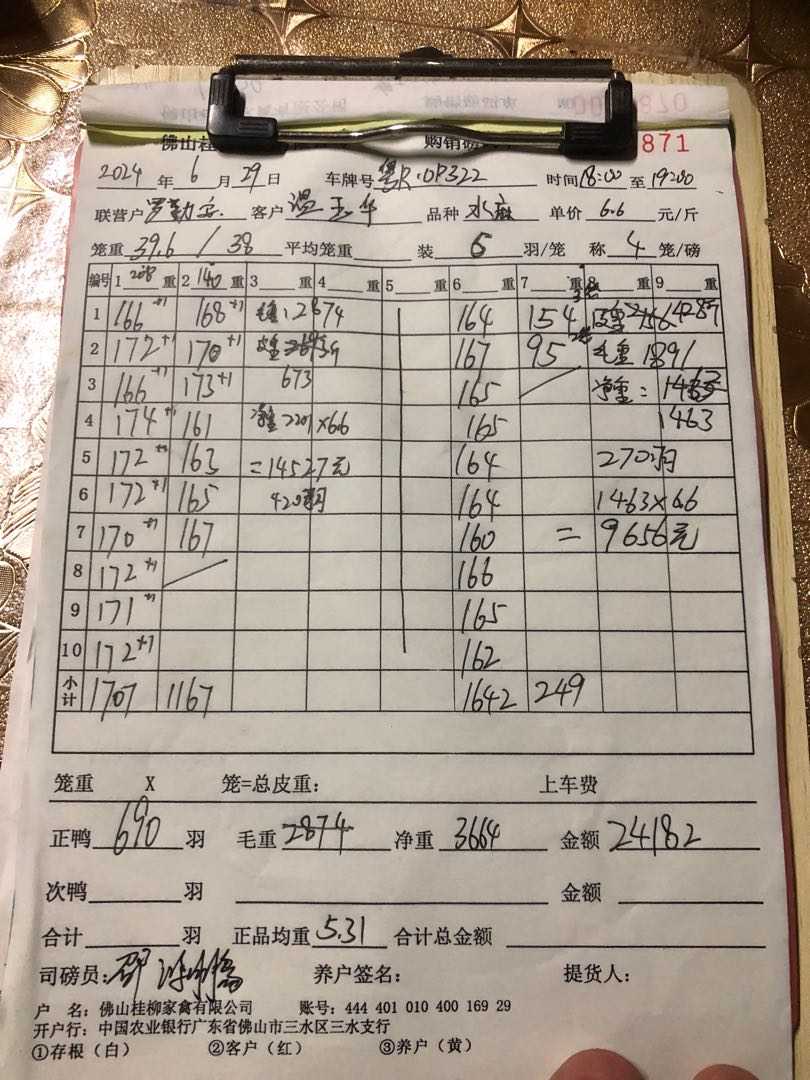 佛山桂柳 购销磅 871
2024 年 6 月 29 日 车牌号 粤R·0P322 时间 18:00 至 19:00
联营户 罗勤 客户 温玉华 品种 水麻 单价 6.6 元/斤
笼重 39.6 / 38 平均笼重 装 6 羽/笼 称 4 笼/磅
编号 1 重 2 140 重 3 重 4 重 5 重 6 重 7 重 8 重 9 重
1 166+1 168+1 毛重:2874 164 154
2 172+1 170+1 皮重 167 95 毛重 1891
3 166+1 173+1 673 165 净重:
4 174+1 161 净重2201×6.6 165 1463
5 172+1 163 =14527元 164 270羽
6 172+1 165 420羽 164 1463×6.6
7 170+1 167 160 = 9656元
8 172+1 166
9 171+1 165
10 172+1 162
小计 1707 1167 1642 249
笼重 X 笼=总皮重: 上车费
正鸭 690 羽 毛重 2874 净重 3664 金额 24182
次鸭 羽 金额
合计 羽 正品均重 5.31 合计总金额
司磅员: 养户签名: 提货人:
户 名: 佛山桂柳家禽有限公司 账号: 444 401 010 400 169 29
开户行: 中国农业银行广东省佛山市三水区三水支行
①存根(白) ②客户(红) ③养户(黄)